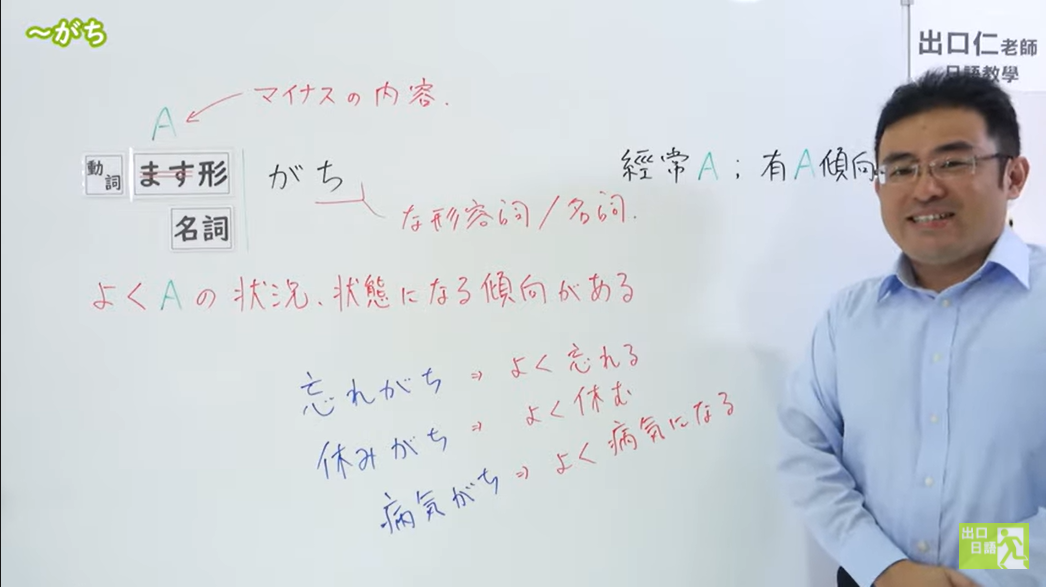 ～がち
出口仁老師
日語教學
A ← マイナスの内容.
動詞 ます形 がち
名詞
な形容詞/名詞.
經常A；有A傾向
よくAの状況、状態になる傾向がある
忘れがち ⇒ よく忘れる
休みがち ⇒ よく休む
病気がち ⇒ よく病気になる
出口
日語